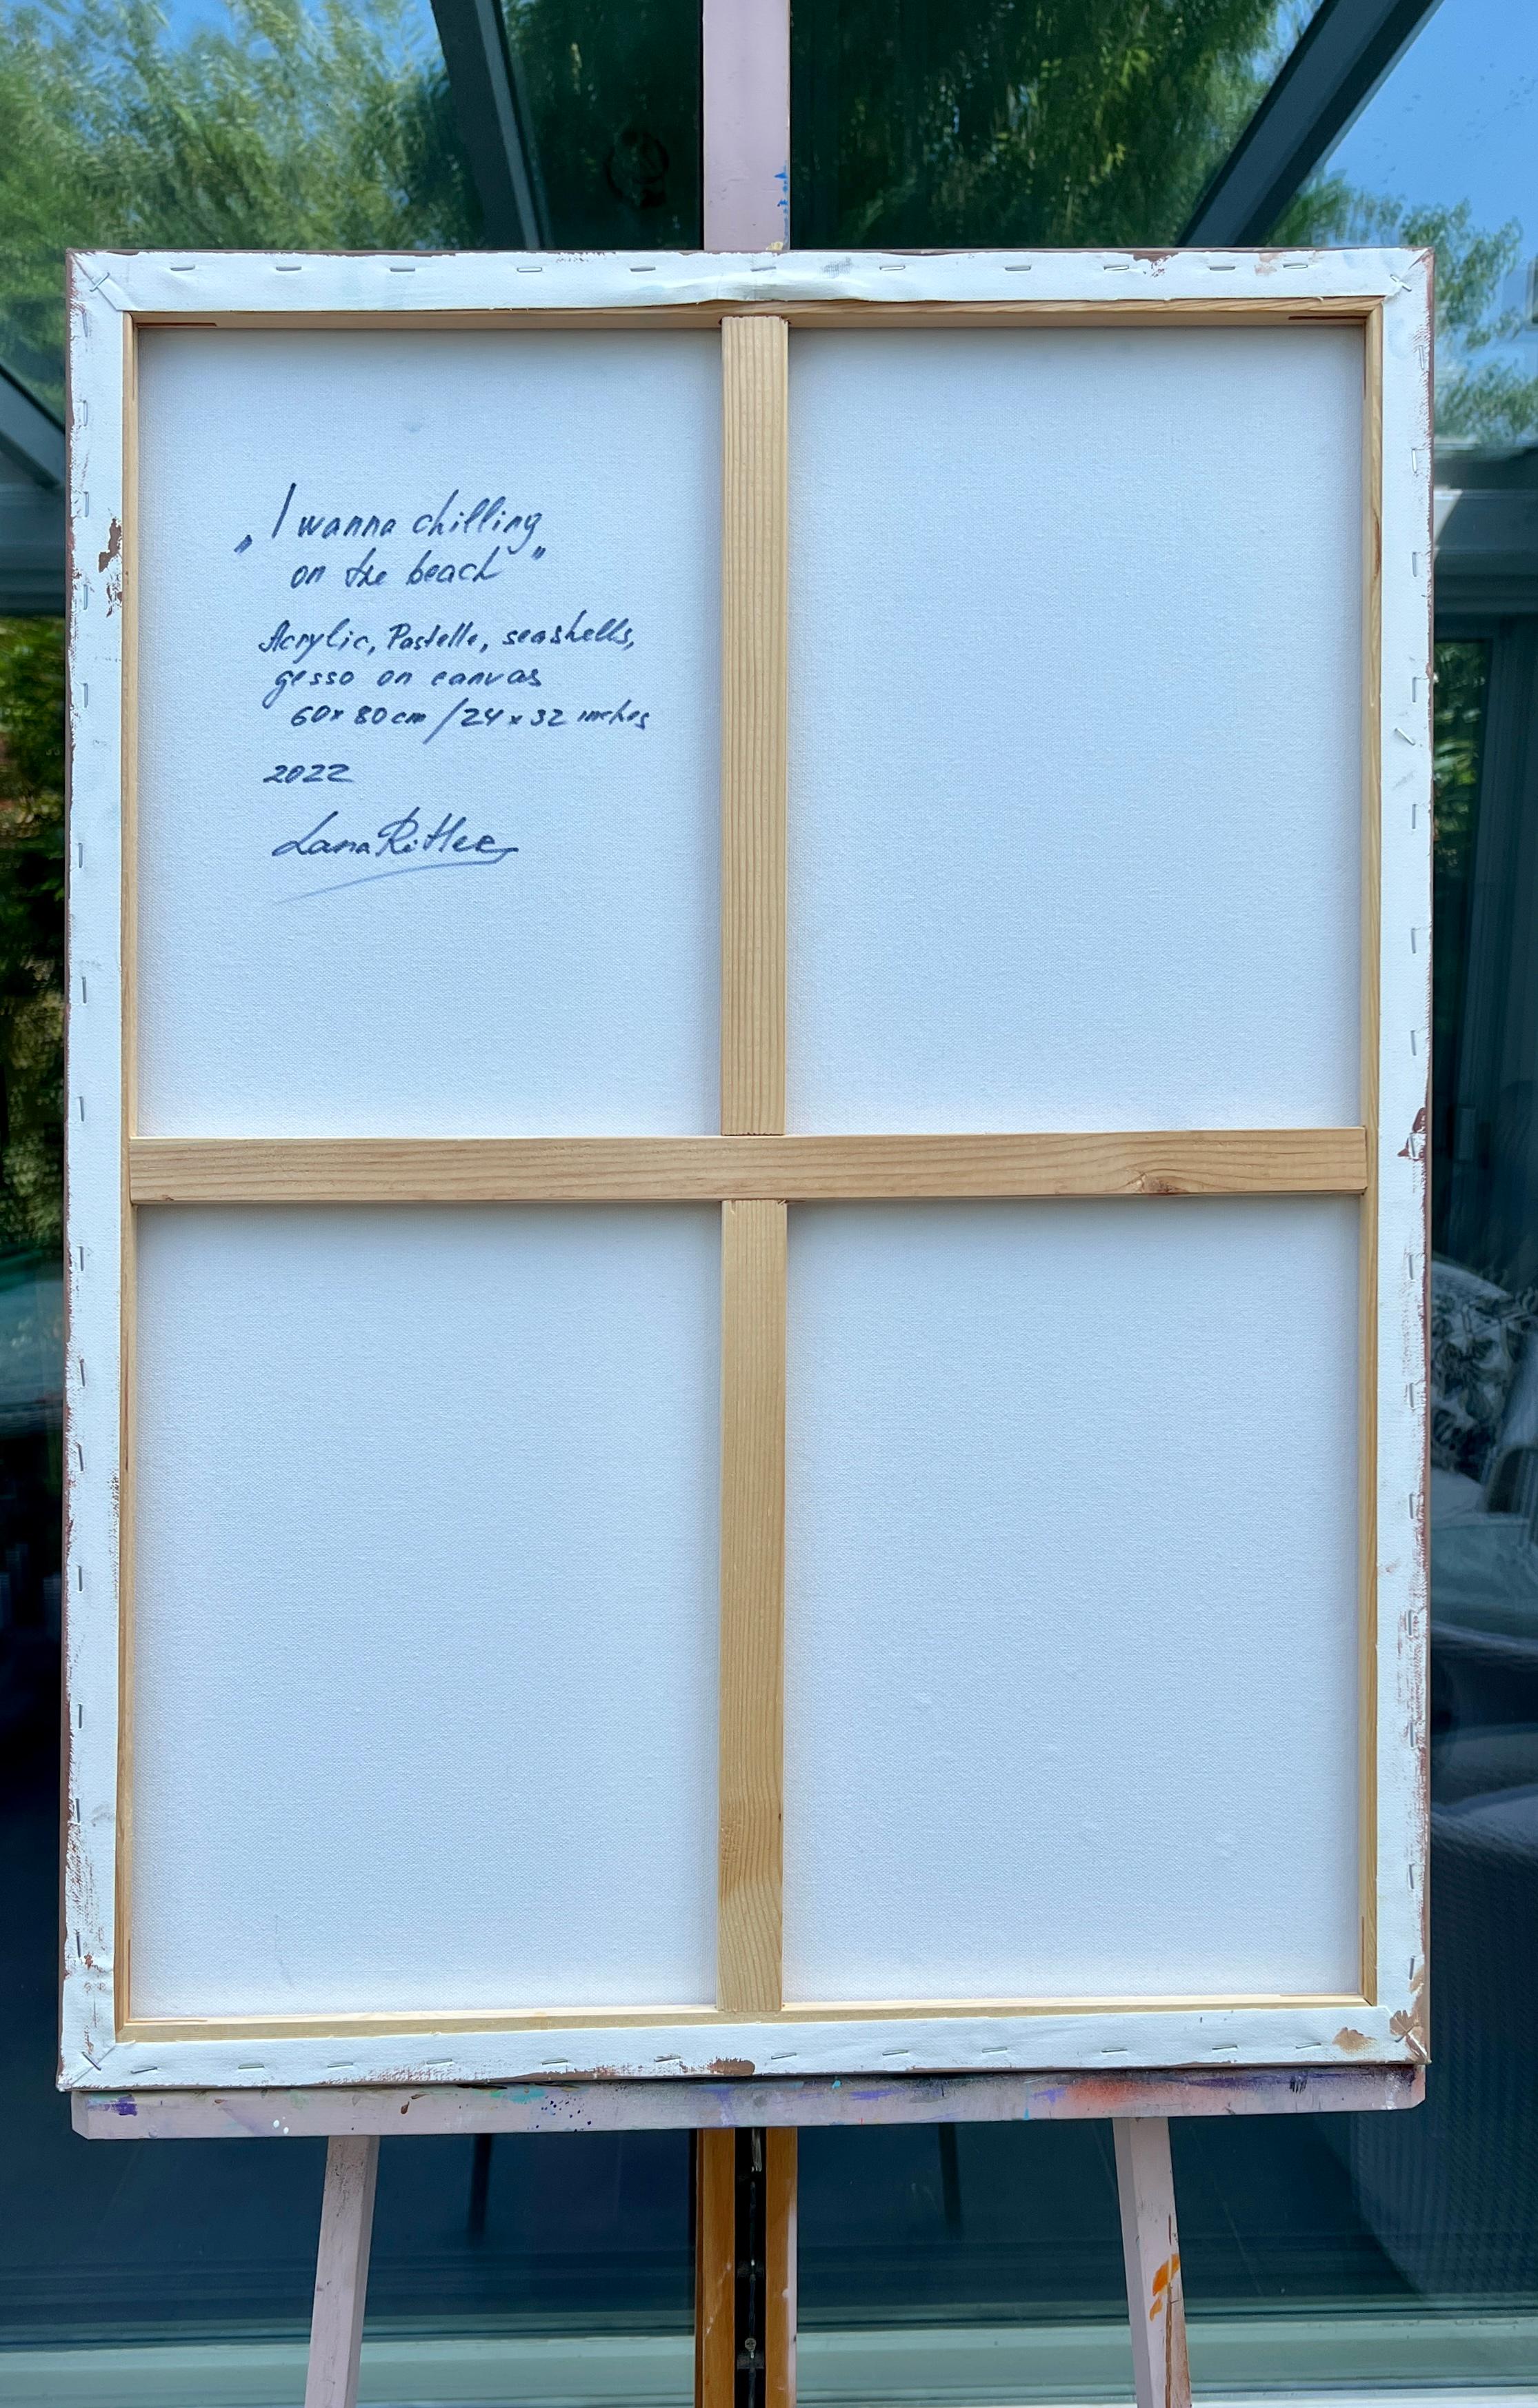 „I wanna chilling
on the beach"
Acrylic, Pastelle, seashells,
gesso on canvas
60x80cm / 24x32 inches
2022
Lana Ritter